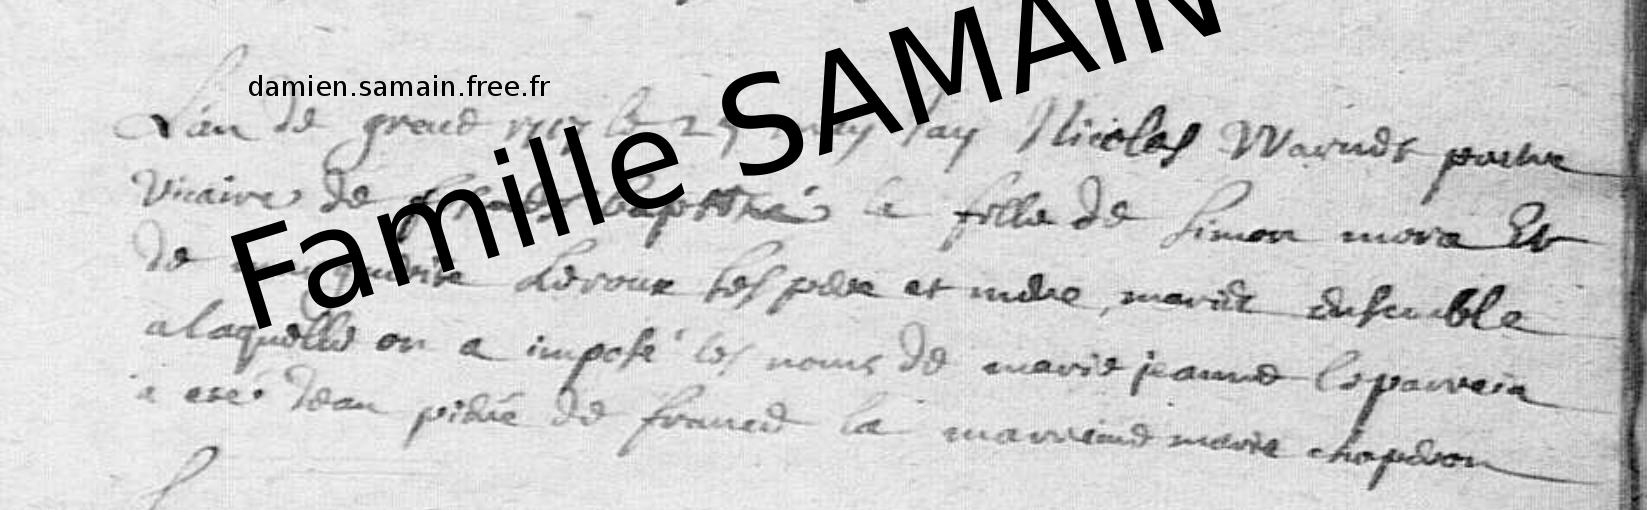 damien.samain.free.fr
Famille SAMAIN
L'an de grace 1717 le may jay Nicolas Warnet pretre
Vicaire de baptisé la fille de Simon mora Et
de Leroux ses pere et mere, mariez ensemble
a laquelle on a imposé les noms de marie jeanne le parein
a esté Jean pierre de france la marreine marie chapron